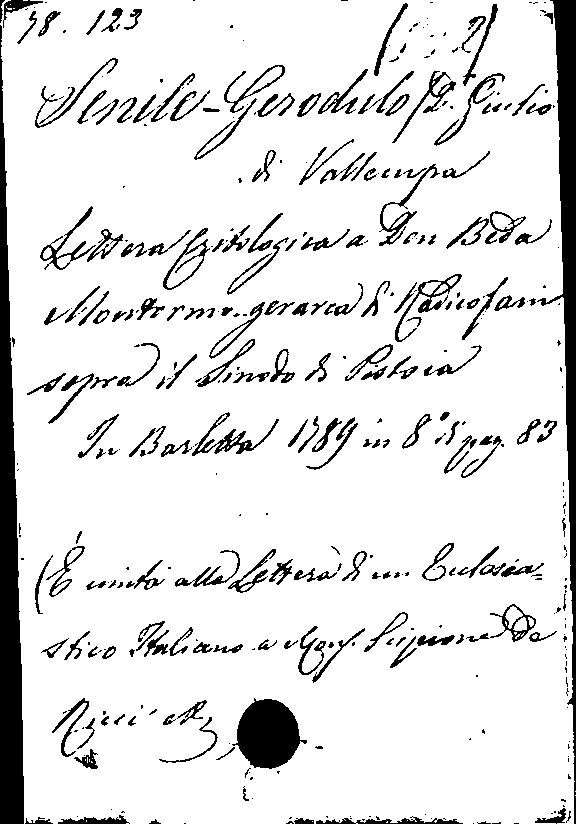 78. 123
Senile-Gerodulo D. Giulio
di Vallecupa
Lettera Critologica a Don Beda
gerarca di Radicofani
sopra il Sinodo di Pistoia
In Barletta 1789 in 8° di pag. 83
(È unita alla Lettera di un Eclesia=
stico Italiano a Mons. Scipione de
Ricci